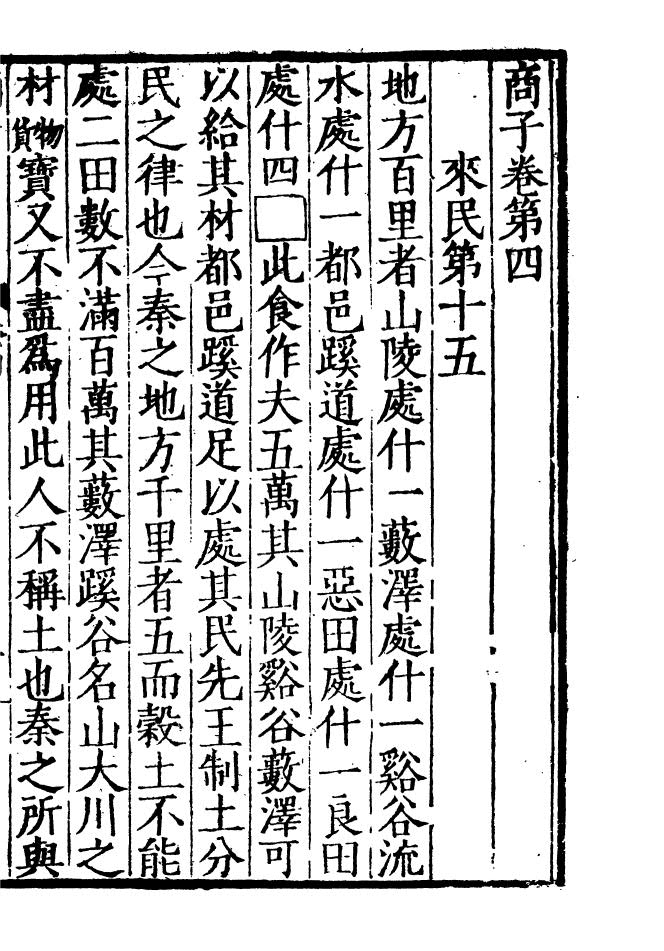 商子卷第四
來民第十五
地方百里者山陵處什一藪澤處什一谿谷流
水處什一都邑蹊道處什一惡田處什一良田
處什四□此食作夫五萬其山陵谿谷藪澤可
以給其材都邑蹊道足以處其民先王制土分
民之律也今秦之地方千里者五而穀土不能
處二田數不滿百萬其藪澤蹊谷名山大川之
材物貨寶又不盡爲用此人不稱土也秦之所與